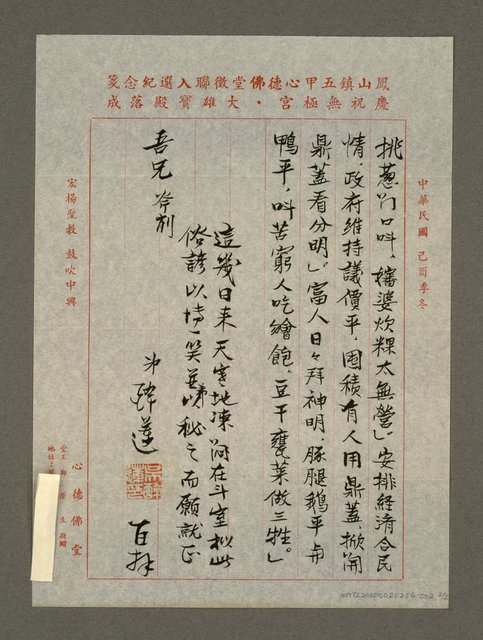 鳳山鎮五甲心德佛堂徵聯入選紀念箋
慶祝無極宮・大雄寶殿落成
中華民國 己酉季冬
挑葱門口叫，擔婆炊粿太無營」安排経済合民
情，政府維持議價平，囤積有人用鼎蓋，掀開
鼎蓋看分明」富人日々拜神明，豚腿鵝平与
鴨平，叫苦窮人吃繪飽，豆干甕菜做三牲。」
吾兄 斧削
這幾日来天寒地凍悶在斗室拟此
俗諺以博一笑 秘之而願就正
弟 錦蓮 百拜
宏揚聖教 鼓吹中興
心德佛堂
堂主 生 敬贈
地址：
NMTL20100020254-002, 2/2